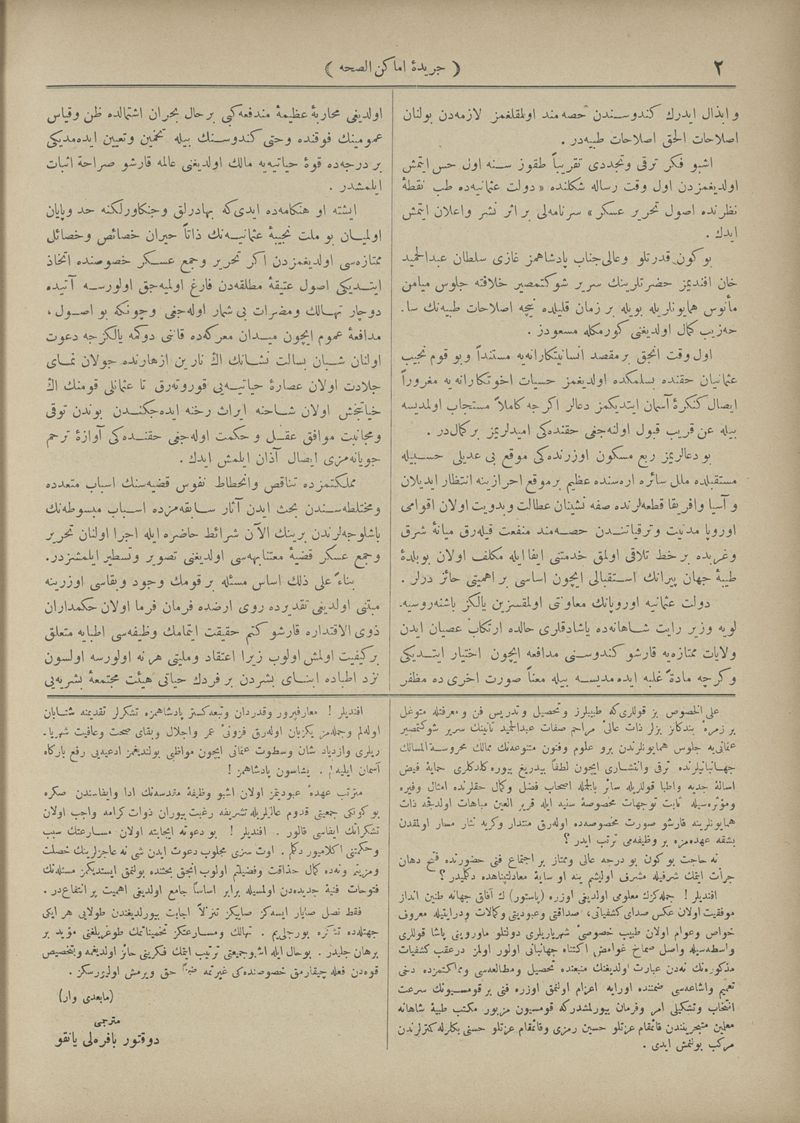 ٢
( جريدهٔ اماكن الصحه )
و ابذال ايدرك كندوسندن حصه مند اولمقلغمز لازمه‌دن بولنان
اصلاحات الحق اصلاحات طبيه‌در .
اشبو فكر ترقى وتجددى تقريباً طقوز سنه اول حس ايتمش
اولديغمزدن اول وقت رساله شكلنده « دولت عثمانيه‌ده طب نقطهٔ
نظرنده اصول تحرير عسكر » سرنامه‌لى بر اثر نشر واعلان ايتمش
ايدك .
بو كون قدرتلو وعالى‌جناب پادشاهمز غازى سلطان عبدالحميد
خان افنديمز حضرتلرينك سرير شوكتمصير خلافته جلوس ميامن
مأنوس همايونلريله بويله بر زمان قليلده نيجه اصلاحات طبيه‌نك سا-
حه‌زيب كمال اولديغنى كورمكله مسعودز .
اول وقت انجق بر مقصد انسانيتكارانه‌يه مستنداً وبو قوم نجيب
عثمانيان حقنده بسلمكده اولديغمز حسيات اخوتكارانه‌يه مغروراً
ايصال كنكرهٔ آسمان ايتديكمز دعالر اكرچه كاملاً مستجاب اولمديسه
بيله عن قريب قبول اولنه‌جغى حقنده‌كى اميدلريمز بركمال‌در .
بو دعالريمز ربع مسكون اوزرنده‌كى موقع بى عديلى حسبيله
مستقبلده ملل سائره اره‌سنده عظيم بر موقع احرازينه انتظار ايديلان
و آسيا وافريقا قطعه‌لرنده صفه نشينان عطالت وبدويت اولان اقوامى
اوروپا مدنيت وترقياتندن حصه‌مند منفعت قيله‌رق ميانهٔ شرق
وغربده بر خط تلاقى اولمق خدمتنى ايفا ايله مكلف اولان بو بلدهٔ
طيبهٔ جهان پيرانك استقبالى ايچون اساسى بر اهميتى حائز درلر .
دولت عثمانيه اوروپانك معاونتى اولمقسزين يالكز باشنه روسيه-
لويه وزير رايت شاهانه‌ده ياشادقلرى حالده ارتكاب عصيان ايدن
ولايات ممتازه‌يه قارشو كندوسنى مدافعه ايچون اختيار ايتديكى
و كرچه مادةً غلبه ايده‌مديسه بيله معناً صورت اخرى ده مظفر
اولديغى محاربهٔ عظيمهٔ مندفعه‌كى بر حال بحران اشتمالده ظن وقياس
عمومينك فوقنده وحتى كندوسنك بيله تخمين وتعيين ايده‌مديكى
بر درجه‌ده قوهٔ حياتيه‌يه مالك اولديغنى عالمه قارشو صراحة اثبات
ايلمشدر .
ايشته او هنكامه‌ده ايدى‌كه بهادرلق وجنكاورلكنه حد وپايان
اولميان بو ملت نجيبهٔ عثمانيه‌نك ذاتاً حيران خصائص وخصائل
ممتازه‌سى اولديغمزدن اكر تحرير وجمع عسكر خصوصنده اتخاذ
ايتديكى اصول عتيقهٔ مطلقه‌دن فارغ اولميه‌جق اولورسه آتيده
دوچار تهالك ومضرات بى شمار اوله‌جغى وچونكه بو اصول ،
مدافعهٔ عموم ايچون ميدان معركه‌ده قاننى دوكمه يالكزجه دعوت
اولنان شبان بسالت نشانك اك نارين ازهارنده جولان نماى
جلادت اولان عصارهٔ حياتيه‌يى قوروته‌رق تا عثمانلى قومنك اك
خياتبخش اولان شاخنه ايراث رخنه ايده‌جكندن بوندن توقى
ومجانبت موافق عقل و حكمت اوله‌جغى حقنده‌كى آوازهٔ ترحم
جويانه‌مزى ايصال آذان ايلمش ايدك .
مملكتمزده تناقص وانحطاط نفوس قضيه‌سنك اسباب متعدده
ومختلطه‌سندن بحث ايدن آثار سابقه‌مزده اسباب مبسوطه‌نك
باشلوجه‌لرندن برينك الآن شرائط حاضره ايله اجرا اولنان تحرير
وجمع عسكر قضيهٔ معتنابهه‌سى اولديغنى تصوير وتسطير ايلمشزدر.
بناءً على ذلك اساس مسئله بر قومك وجود وبقاسى اوزرينه
مبتنى اولديغى تقديرده روى ارضده فرمان فرما اولان حكمداران
ذوى الاقتداره قارشو كتم حقيقت ايتمامك وظيفه‌سى اطبايه متعلق
بر كيفيت اولمش اولوب زيرا اعتقاد ومليتى هر نه اولورسه اولسون
نزد اطباده ابناى بشردن بر فردك حياتى هيئت مجتمعهٔ بشريه‌يى
على الخصوص بز قوللرى‌كه طبيبلرز وتحصيل وتدريس فن و معرفتله متوغل
بر زمره بندكانز بزلر ذات عالئ مراحم صفات عبدالحميد ثانينك سرير شوكتمصير
عثمانى‌يه جلوس همايونلرندن برو علوم وفنون متنوعه‌نك ممالك محروسةالمسالك
جهانبانيلرنده ترقى وانتشارى ايچون لطفاً بيدريغ بيوره كلدكلرى حمايهٔ فيض
اسالهٔ جديه واطبا قوللريله سائر بالجمله اصحاب فضل وكمال حقلرنده امثال وفيره
ومؤثره‌سيله ثابت توجهات مخصوصهٔ سنيه ايله قرير العين مباهات اولديغمه ذات
همايونلرينه قارشو صورت مخصوصه‌ده اوله‌رق منتدار وكريه نثار مسار اولمقدن
بشقه عهده‌مزه بر وظيفه‌مى ترتب ايدر ؟
نه حاجت بو كون بو درجه عالى وممتاز بر اجتماع فنى حضورنده فتح دهان
جرأت ايتمك شرفيله مشرف اولشم ينه او سايهٔ معادلتپناهده دكليدر ؟
افنديلر ! جمله‌كزك معلومى اولديغى اوزره (پاستور) ك آفاق جهانه طنين انداز
موفقيت اولان عكس صداى كشفياتى ، صداقتى وعبوديتى وكمالات ودرايتيله معروف
خواص وعوام اولان طبيب خصوصئ شهرياريلرى دولتلو ماوروينى پاشا قوللرى
واسطه‌سيله واصل صماخ غوامض اكتناه جهانبانى اولور اولمز در عقب كشفيات
مذكوره‌نك نه‌دن عبارت اولديغنك منبعنده تحصيل ومطالعه‌سى ومملكتمزده دخى
تعميم واشاعه‌سى ضمننده اورايه اعزام اولنمق اوزره فنى بر قومسيونك سرعت
انتخاب وتشكيلى امر وفرمان بيورلمشدركه قومسيون مزبور مكتب طبيهٔ شاهانه
معلمين متبحريندن قائمقام عزتلو حسين رمزى وقائمقام عزتلو حسنى بكلرله كنزلرندن
مركب بولنمش ايدى .
افنديلر ! معارفپرور وقدردان وتبعه‌كستر پادشاهمزه تشكرلر تقديمنه شتابان
اوله‌لم وجمله‌مز يكزبان اوله‌رق فزونئ عمر واجلال وبقاى صحت وعافيت شهريا-
ريلرى وازدياد شان وسطوت عثمانى ايچون مواظبى بولنديغمز ادعيه‌يى رفع باركاه
آسمان ايليه‌لم . يشاسون پادشاهمز !
مترتب عهدهٔ عبوديتمز اولان اشبو وظيفهٔ مقدسه‌نك ادا وايفاسندن صكره
بو كونكى جمعيتى قدوم عاليلريله تشريفه رغبت بيوران ذوات كرامه واجب اولان
تشكراتك ايفاسى قالور . افنديلر ! بو دعوته ايجابته اولان مسارعتك سبب
وحكمتنى اكلاميور دكلم . اوت سزى مجلوب دعوت ايدن شى نه عاجزلرينك خصلت
ومزيتم ونه‌ده كمال حذاقت وفضيلتم اولوب انجق بحثنده بولنمق ايستديكمز مسئله‌نك
فتوحات فنيهٔ جديده‌دن اولمسيله برابر اساساً جامع اولديغى اهميت پر انتفاع‌در .
فقط نصل صايار ايسه‌كز صايكز تنزلاً اجابت بيورلديغندن طولايى هر ايكى
جهتله‌ده تشكره بورجلى‌يم . تهالك ومسارعتكز تخميناتمك طوغريلغنى مؤيد بر
برهان جليدر . بو حال ايله اشبو جمعيتى ترتيب ايتمك فكرينى حائز اولديغمه وبالتخصيص
قوه‌دن فعله چيقارمق خصوصنده‌كى غيرتمه ضمناً حق ويرمش اوليورسكز .
( مابعدى وار )
مترجمى
دوقتور بافره‌لى يانقو